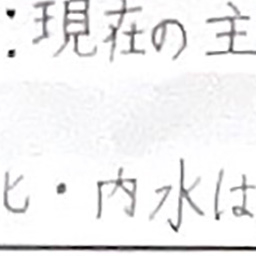 :現在の主
比・内水は